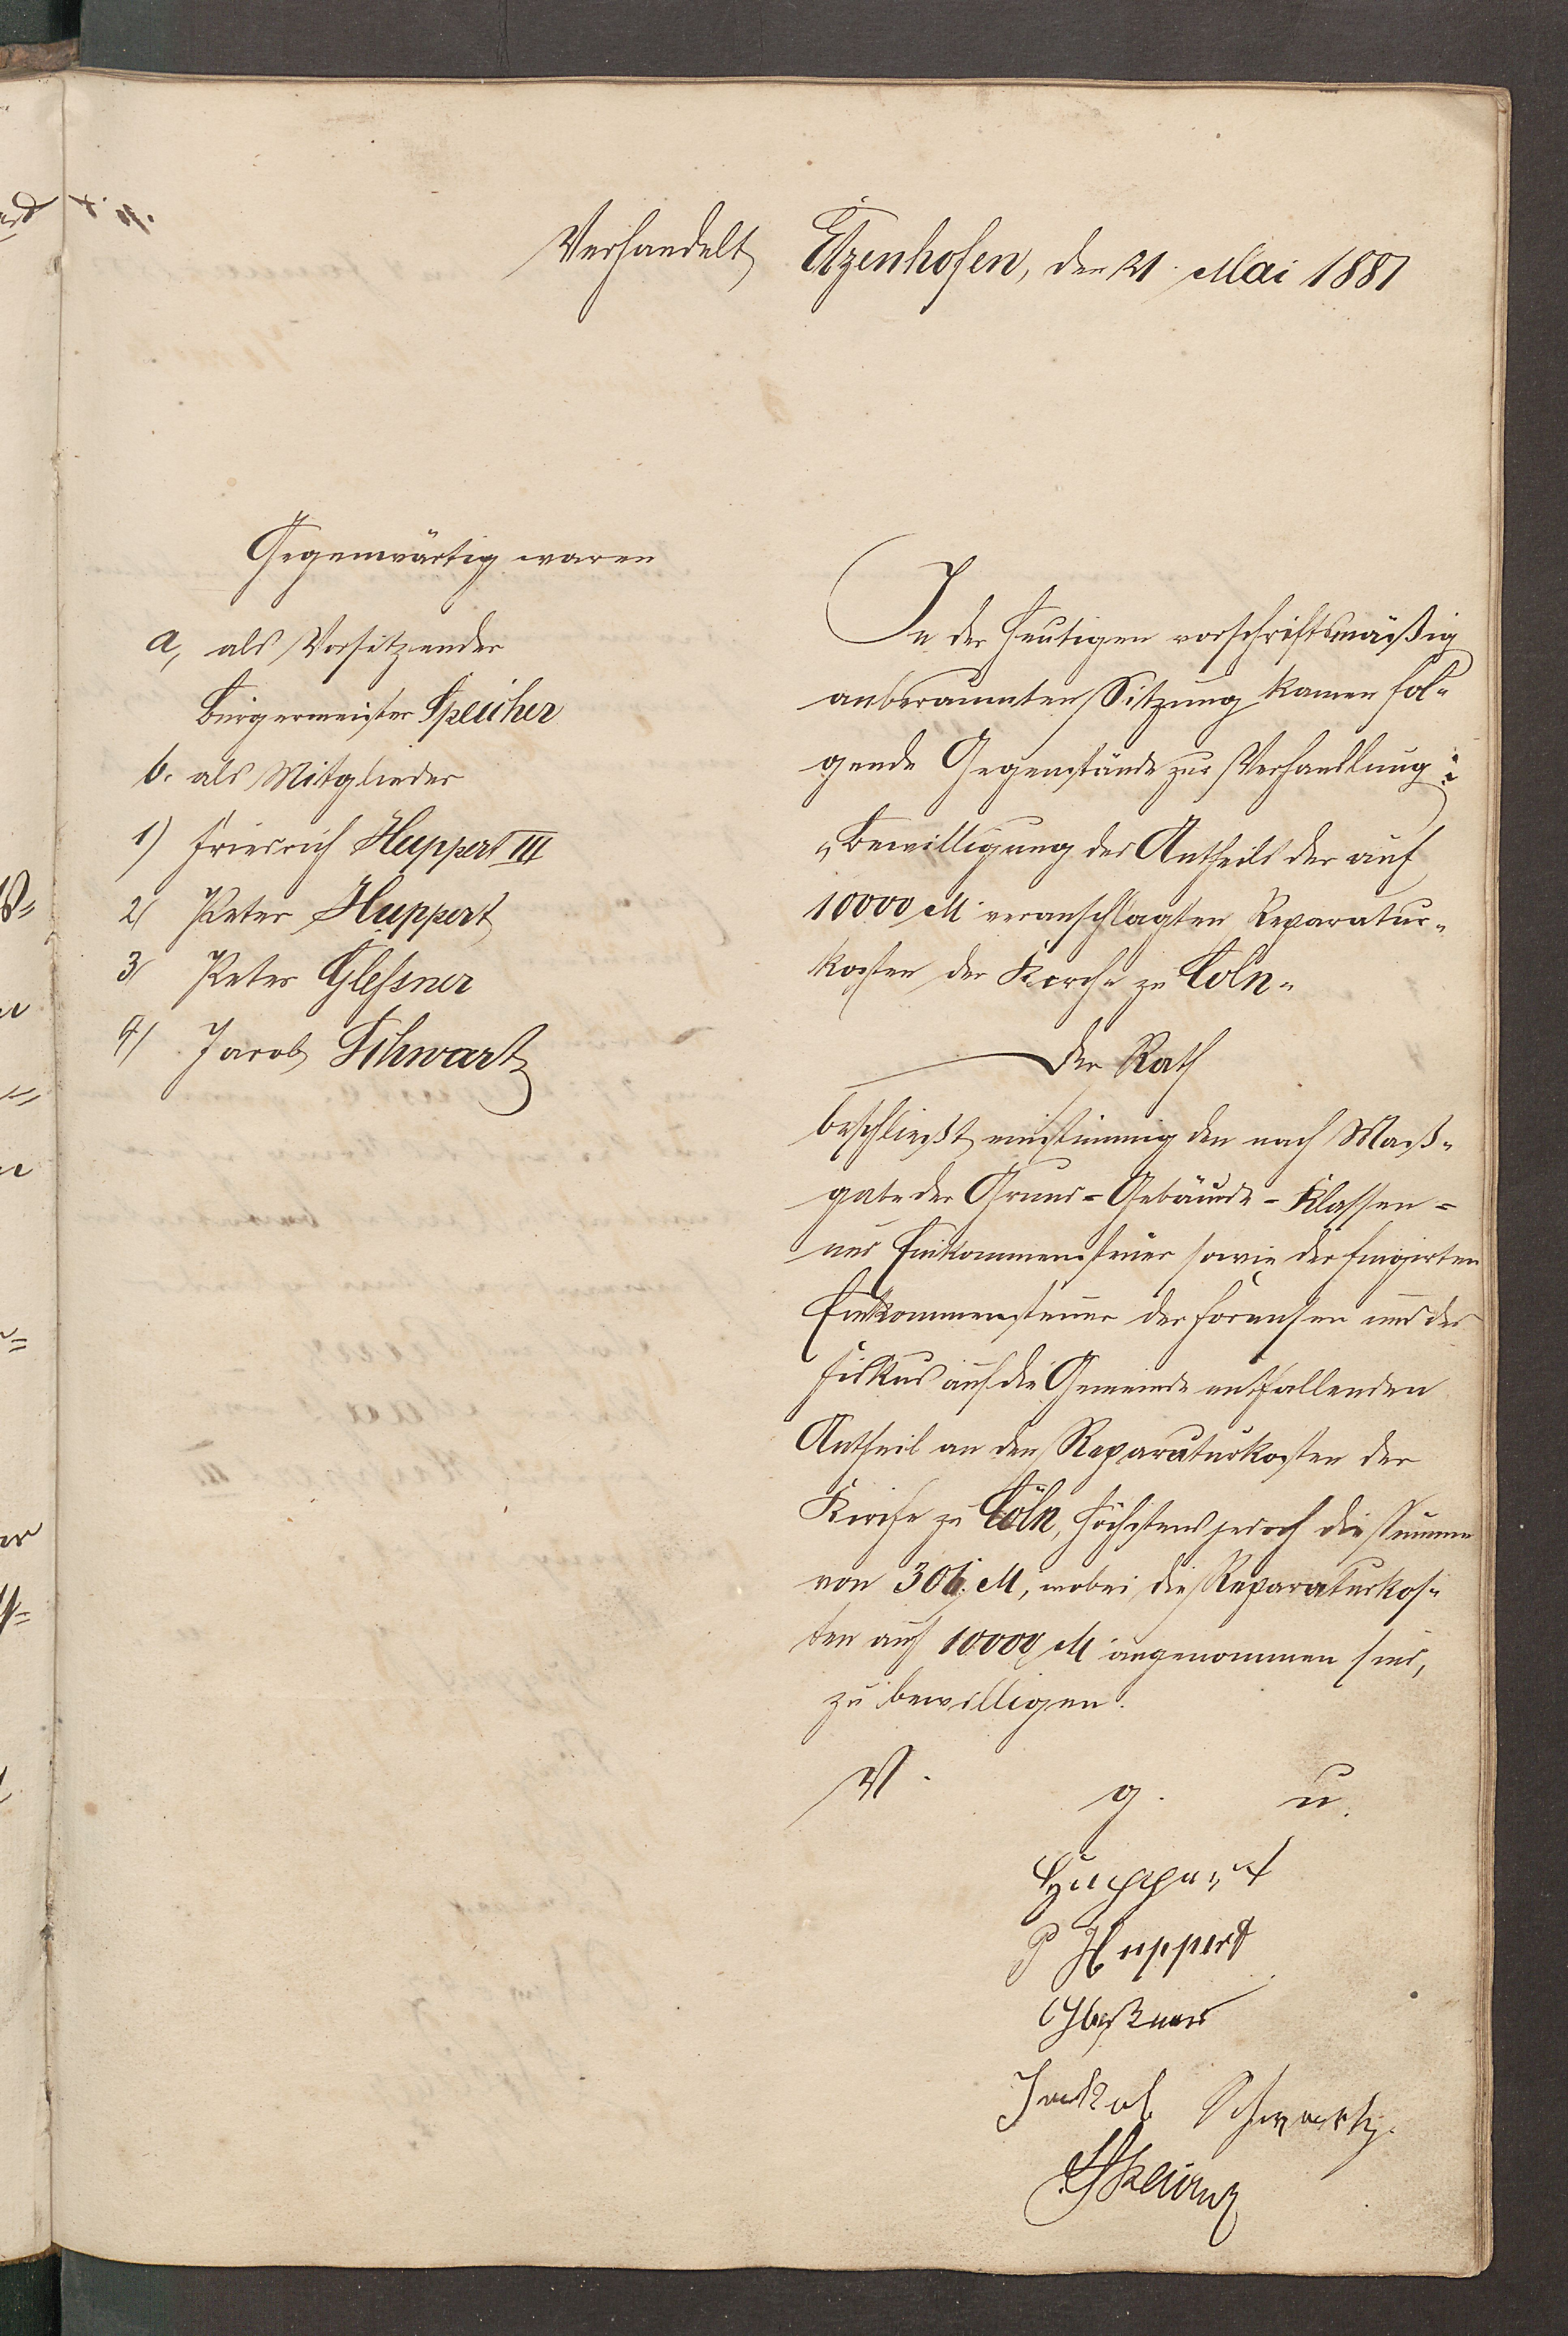 Verhandelt Etzenhofen, den 21. Mai 1887
Gegenwärtig waren
a, als Vorsitzender
Bürgermeister Speicher
b. als Mitglieder
1) Friedrich Huppert III
2) Peter Huppert
3) Peter Glessner
4) Jacob Schwartz
In der heutigen vorschriftsmäßig
anberaumten Sitzung kamen fol-
gende Gegenstände zur Verhandlung:
"Bewilligung des Antheils der auf
10000 M veranschlagten Reparatur-
kosten der Kirche zu Cöln"
Der Rath
beschließt einstimmig den nach Maaß-
gabe der Grund- Gebäude- Klassen-
und Einkommensteuer sowie der fingirten
Einkommensteuer der Forensen und des
Fiskus auf die Gemeinde entfallenden
Antheil an den Reparaturkosten der
Kirche zu Cöln, höchstens jedoch die Summe
von 306 M, wobei die Reparaturkos-
ten auf 10000 M angenommen sind,
zu bewilligen.
V. g. u.
Huppert
P Huppert
Gleßner
Jakob Schwartz.
Speicher